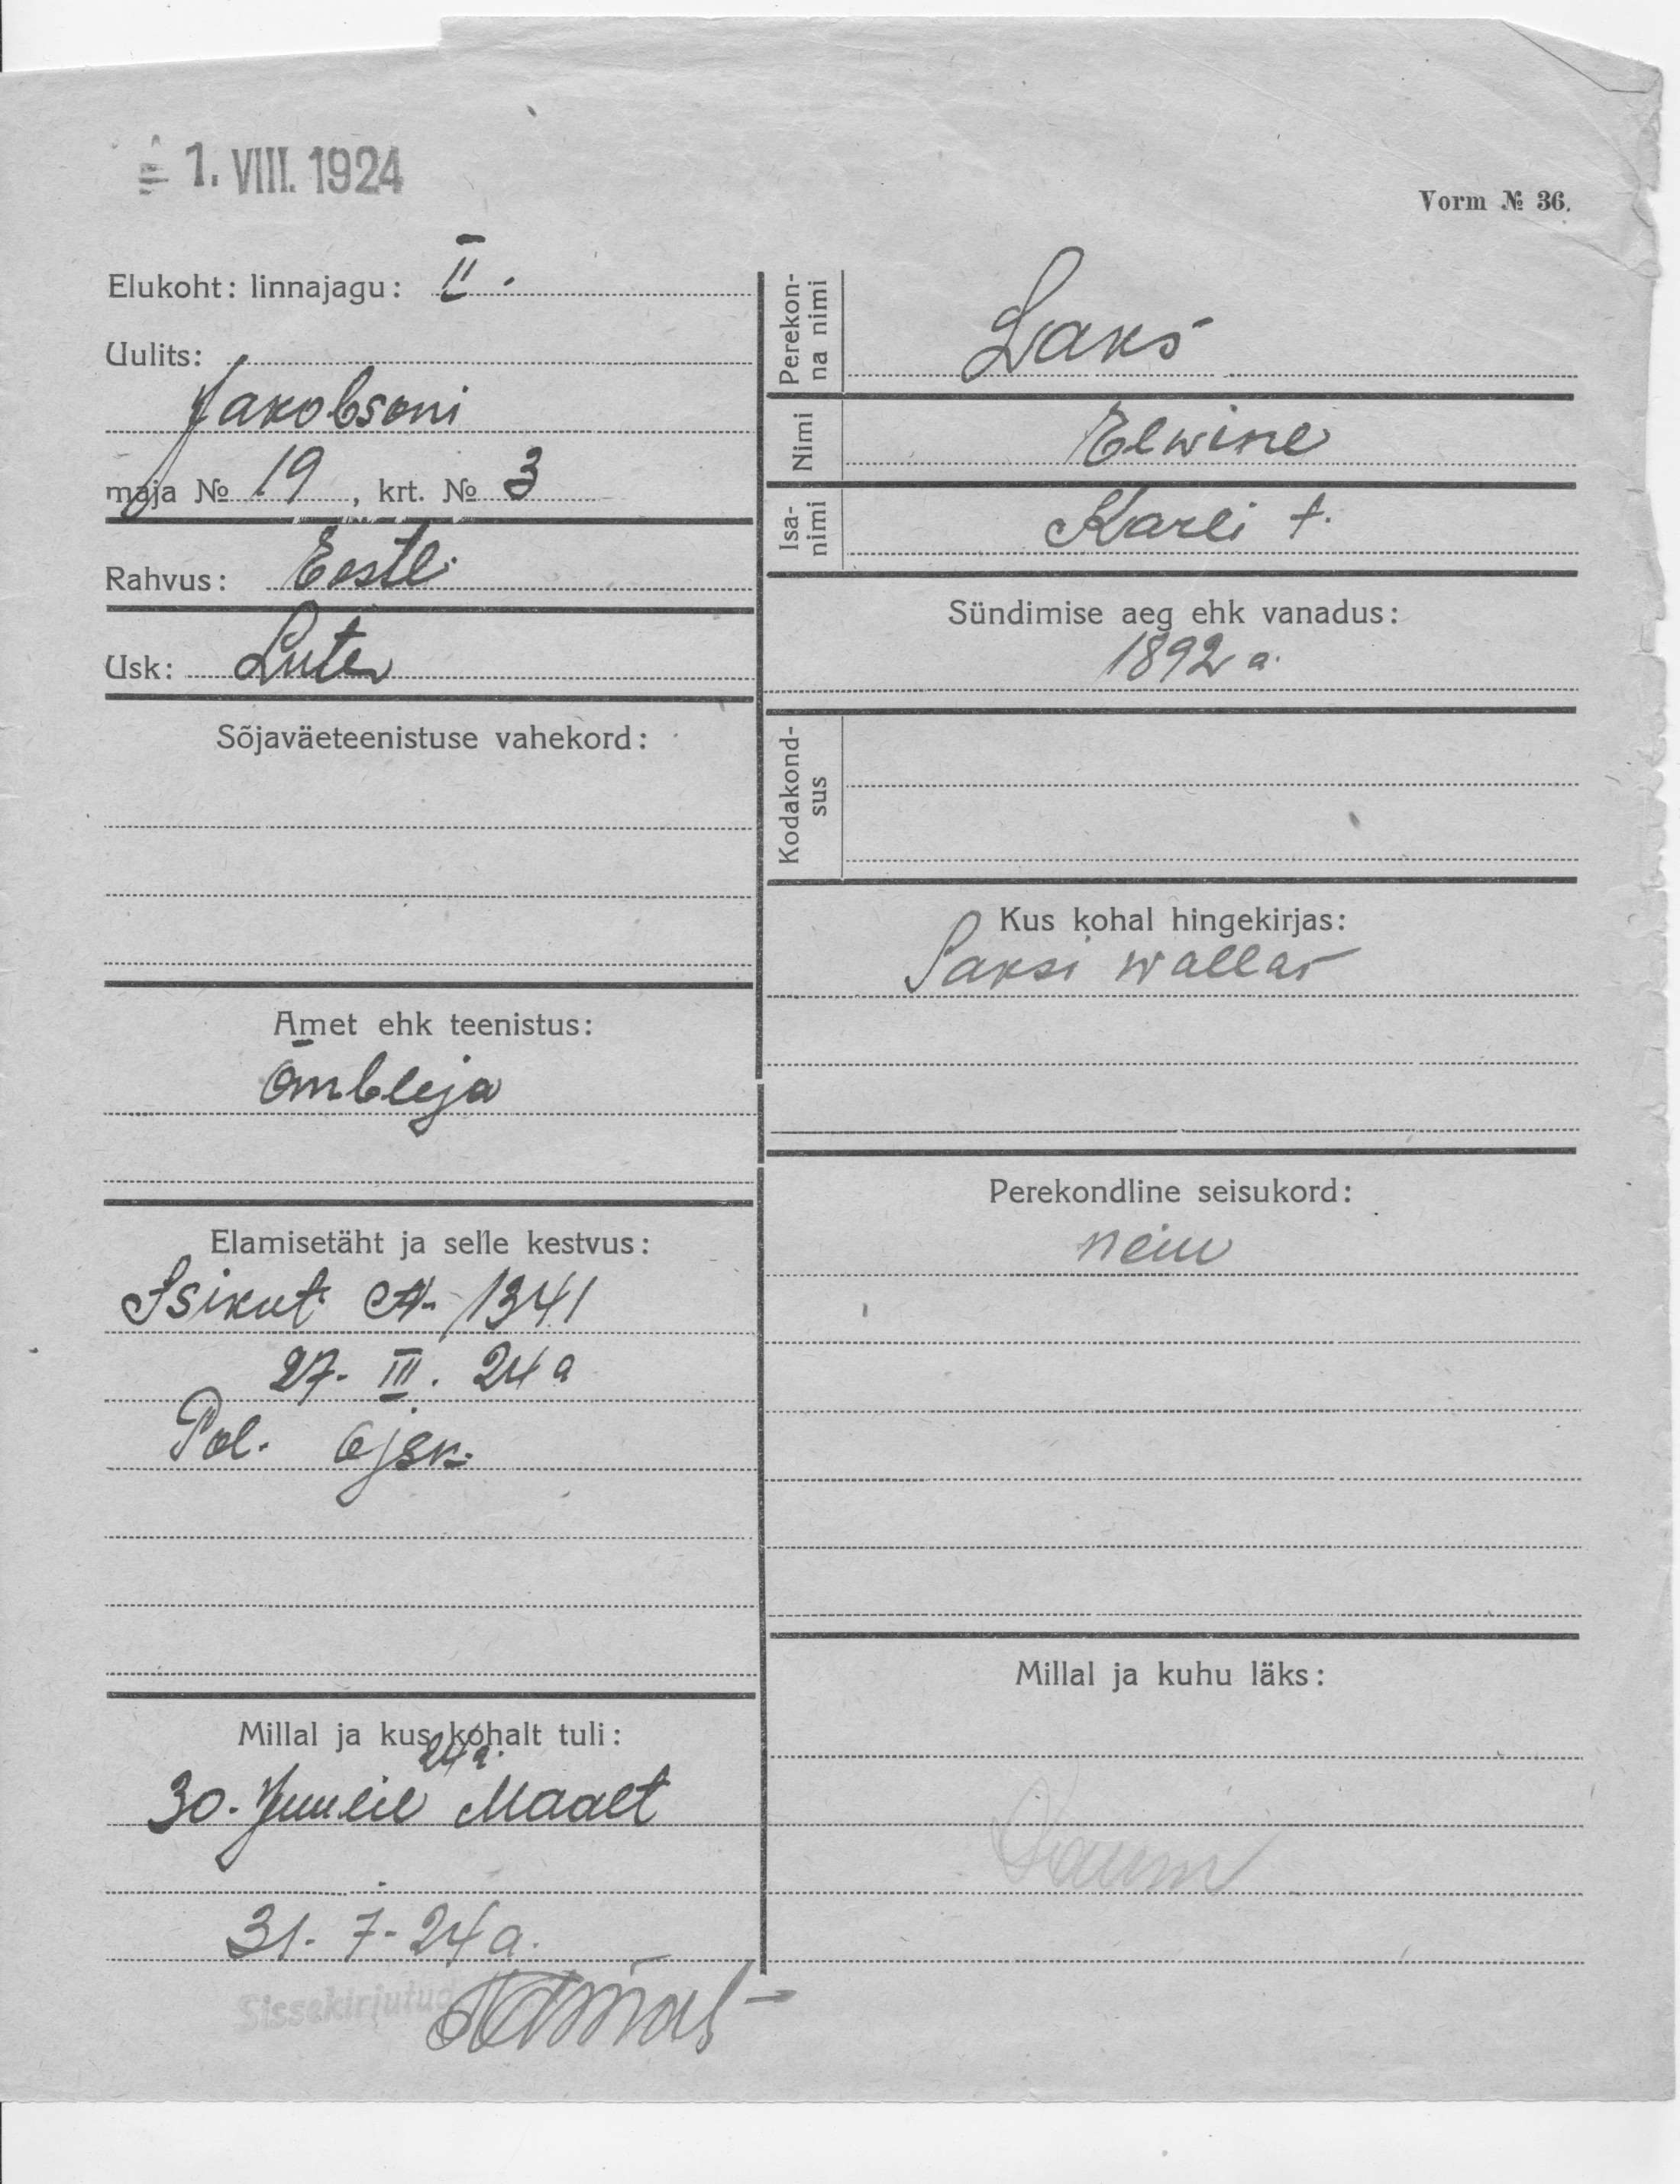 1. VIII. 1924
Vorm № 36.
Elukoht: linnajagu: II.
Uulits:
Jakobsoni
maja № 19, krt. № 3
Rahvus: Eesti
Usk: Luter
Sõjaväeteenistuse vahekord:
Amet ehk teenistus:
Õmbleja
Elamisetäht ja selle kestvus:
Isikut A- 1341
27. III. 24 a
Pol. 6 jsk.
Millal ja kus kohalt tuli:
24 a.
30. Juulil Maalt
31. 7. 24 a.
Sissekirjutud
Perekonna nimi
Laks
Nimi
Elwine
Isanimi
Karli t.
Sündimise aeg ehk vanadus:
1892 a.
Kodakondsus
Kus kohal hingekirjas:
Saksi wallas
Perekondline seisukord:
neiu
Millal ja kuhu läks: